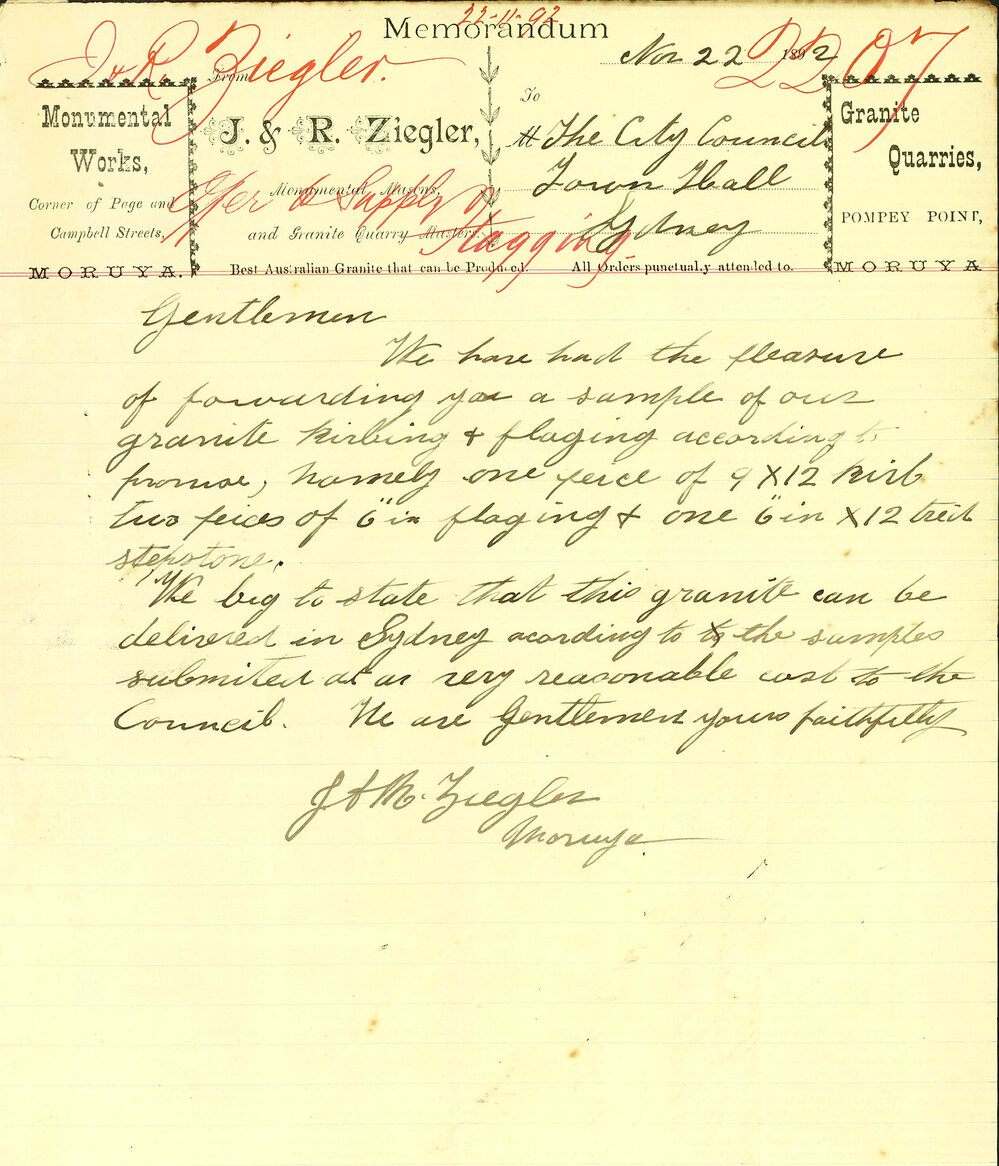 22-11-92
Memorandum
J & R. Ziegler.
From
Nov 22 1892
2207
Monumental
Works,
Corner of Page and
Campbell Streets,
MORUYA.
J. & R. Ziegler,
Monumental Masons,
and Granite Quarry Masters.
Offer to Supply
flagging
To
The City Council
Town Hall
Sydney
Granite
Quarries,
POMPEY POINT,
MORUYA
Best Australian Granite that can be Produced. All Orders punctually attended to.
Gentlemen
We have had the pleasure
of forwarding you a sample of our
granite kirbing & flaging according to
promise, namely one peice of 9 X 12 kirb
two peices of 6" in flaging & one 6" in X 12 tred
stepstone.
We beg to state that this granite can be
delivered in Sydney acording to the samples
submited at a very reasonable cost to the
Council. We are Gentlemen yours faithfully
J & R. Ziegler
Moruya